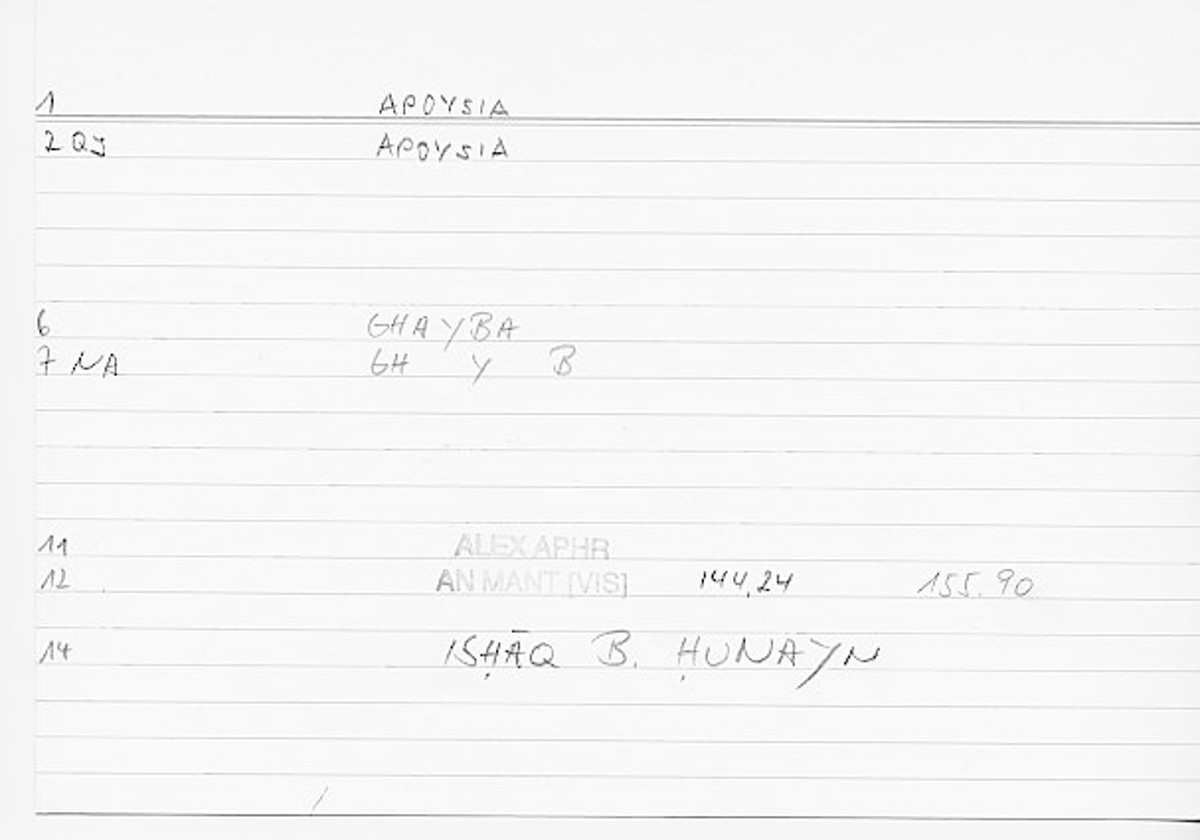 1 APOYSIA
2 QY APOYSIA
6 GHAYBA
7 NA GH Y B
11 ALEX APHR
12 AN MANT [VIS] 144,24 155.90
14 ISḤĀQ B. ḤUNAYN